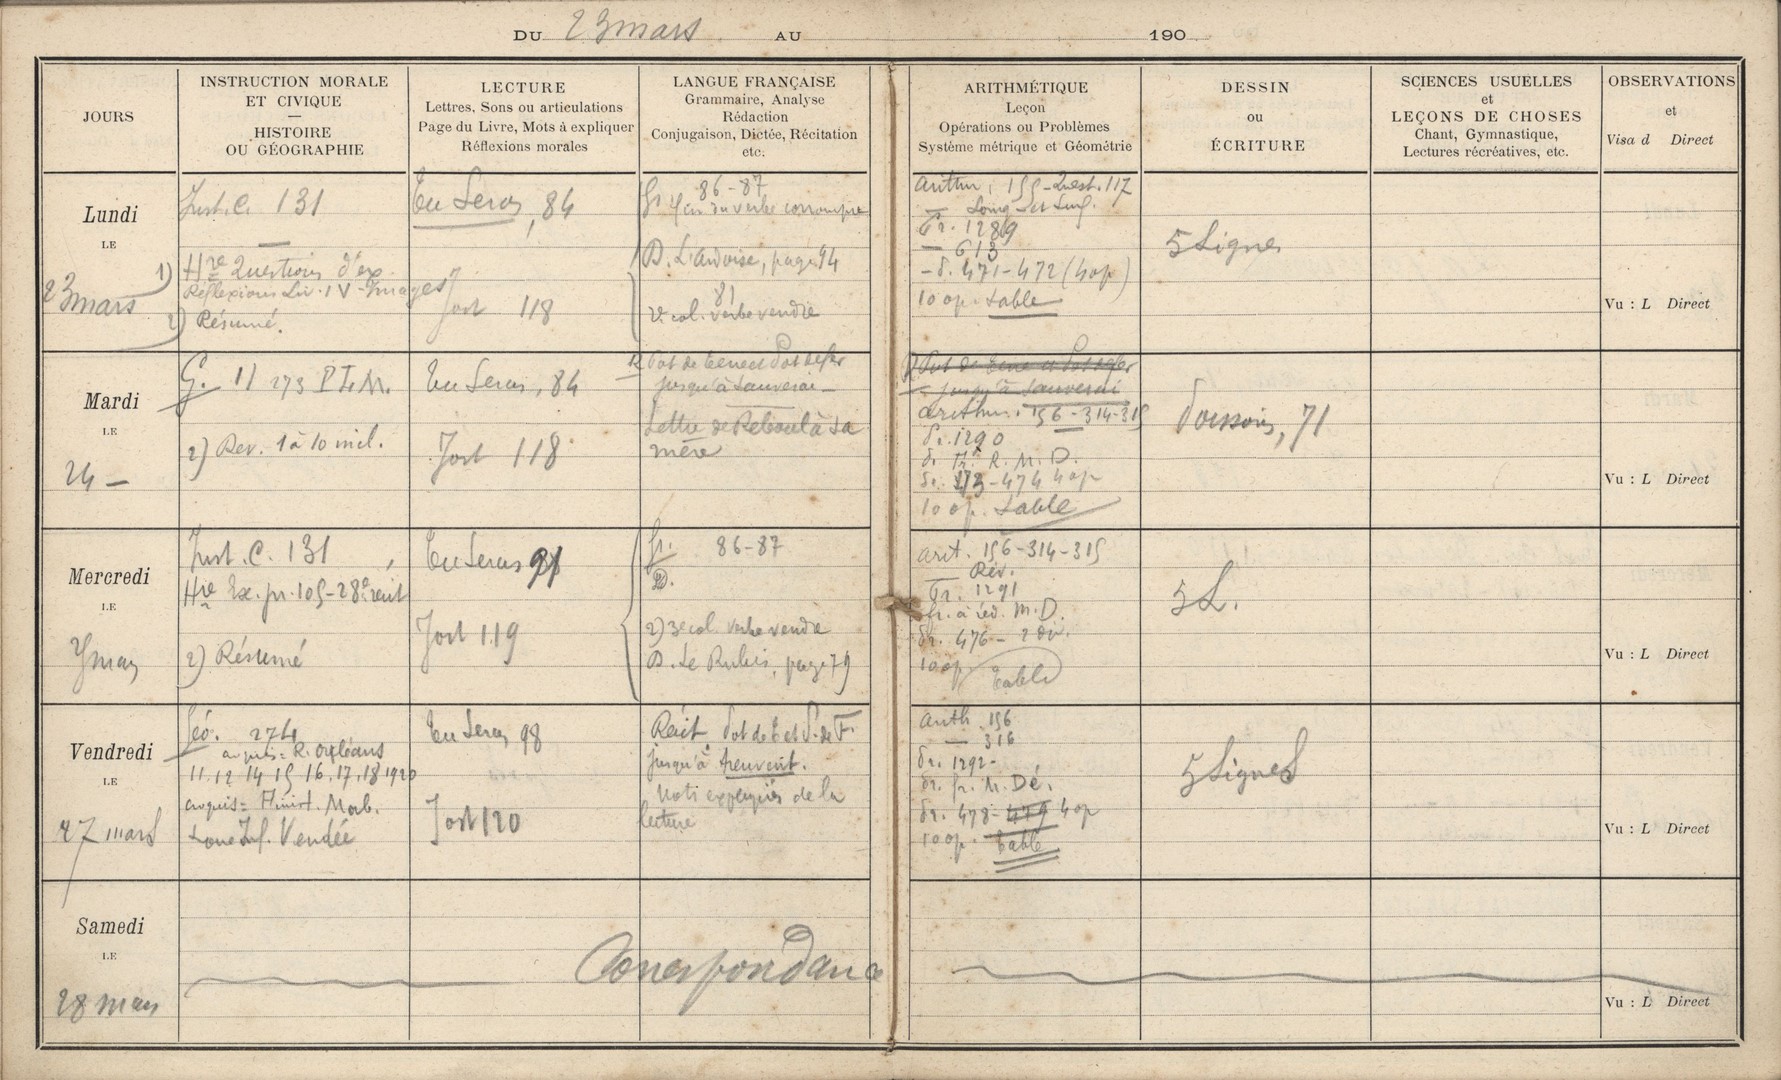 DU 23 mars AU 190
JOURS
INSTRUCTION MORALE
ET CIVIQUE
—
HISTOIRE
OU GÉOGRAPHIE
LECTURE
Lettres, Sons ou articulations
Page du Livre, Mots à expliquer
Réflexions morales
LANGUE FRANÇAISE
Grammaire, Analyse
Rédaction
Conjugaison, Dictée, Récitation
etc.
ARITHMÉTIQUE
Leçon
Opérations ou Problèmes
Système métrique et Géométrie
DESSIN
ou
ÉCRITURE
SCIENCES USUELLES
et
LEÇONS DE CHOSES
Chant, Gymnastique,
Lectures récréatives, etc.
OBSERVATIONS
et
Visa d Direct
Lundi
LE
23 mars
Inst. C. 131
1) Hre Questions d'ex.
Réflexions Liv. IV - Images
2) Résumé.
Tu Seras, 84
Jost 118
86-87
Gr du verbe corrompre
D. L'ardoise, page 94
81
2e col. verbe vendre
Arithm. 155 - Quest. 117
1289
613
471-472 (4 op)
10 op. table
5 Lignes
Vu : L Direct
Mardi
LE
24 —
G. 11 273 P.L.M.
2) Rev. 1 à 10 incl.
Tu Seras, 84
Jost 118
Pot de terre et Pot de fer
jusqu'à Sauverai —
Lettre de Reboul à sa
mère
Pot de terre et Pot de fer
jusqu'à sauverai
Arithm. 156-314-315
1290
R. M. D.
474 4 op
10 op. table
71
Vu : L Direct
Mercredi
LE
Inst. C. 131
Hre Ex. pr. 105-28e récit
2) Résumé
Tu Seras 91
Jost 119
Gr. 86-87
D.
2) 3e col. verbe vendre
D. Le Rubis, page 79
Arit. 156-314-315
Rév.
1291
M. D.
476 -
10 op table
5 L.
Vu : L Direct
Vendredi
LE
27 mars
Géo. 274
croquis = R. Orléans
11.12 14 15 16.17.18 19 20
croquis = Finist. Morb.
Loire Inf. Vendée
Tu Seras 98
Jost 120
Récit Pot de T et P. de F.
jusqu'à treuvent.
Mots expliqués de la
lecture
Arith. 156
— 316
1292 -
478-479 4 op
10 op. table
5 Lignes
Vu : L Direct
Samedi
LE
28 mars
Correspondance
Vu : L Direct